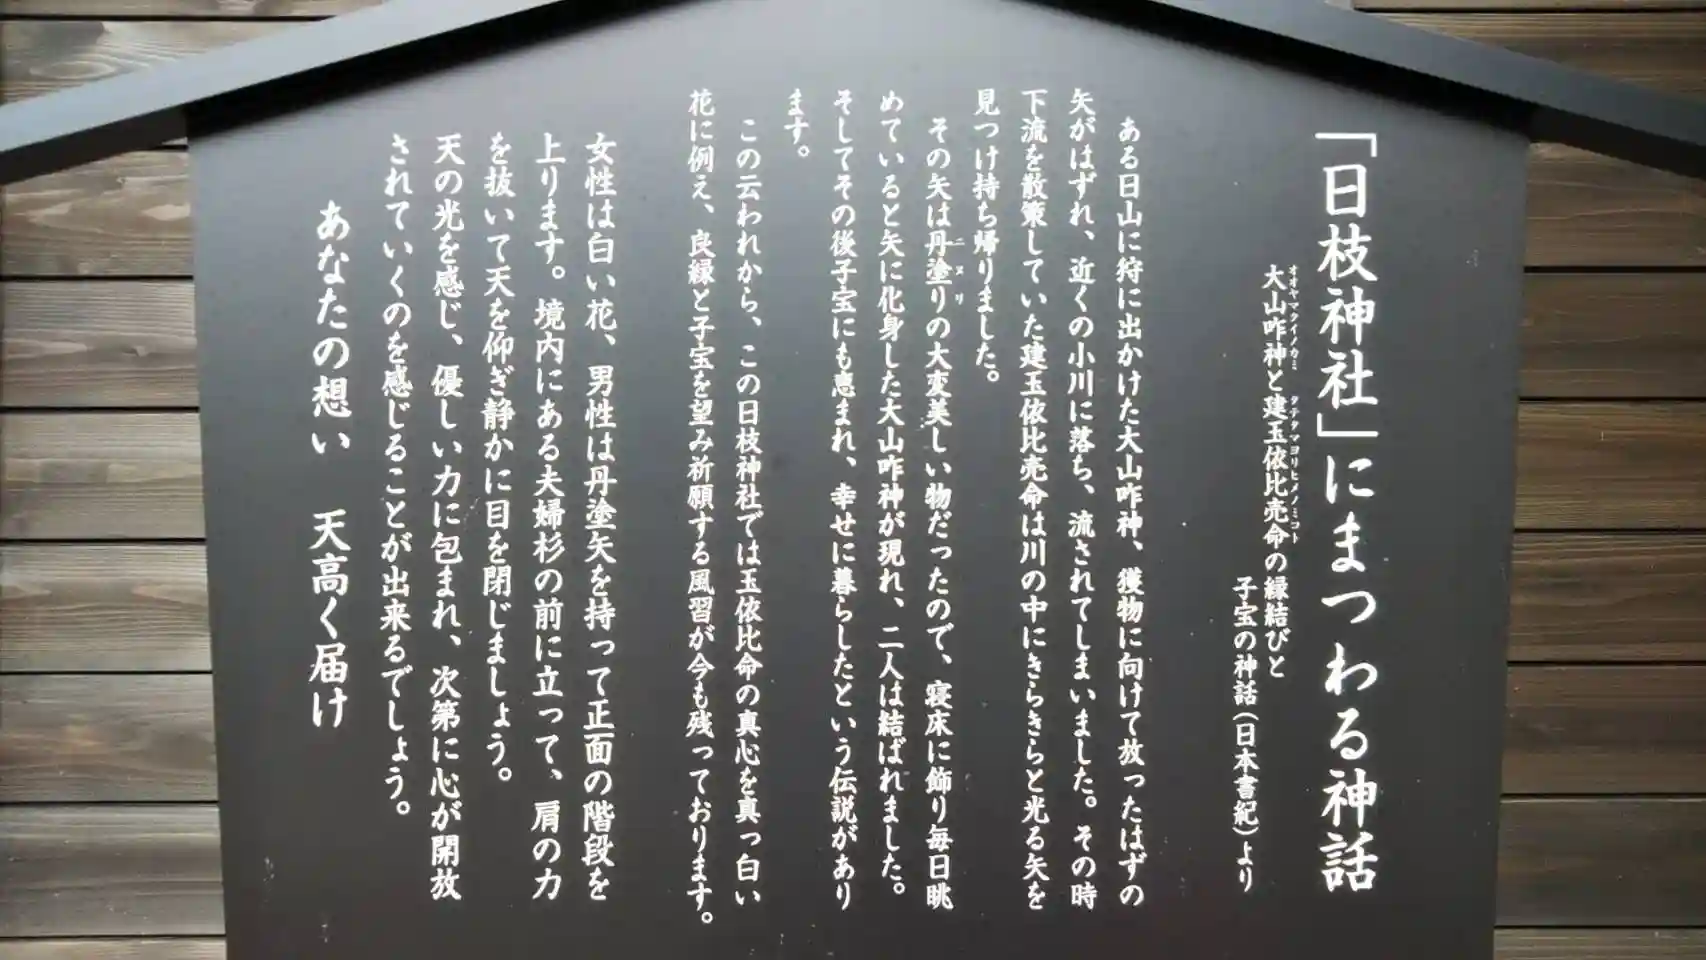 「日枝神社」にまつわる神話
大山咋神と建玉依比売命の縁結びと
オオヤマクイノカミ タテタマヨリヒメノミコト
子宝の神話(日本書紀)より
ある日山に狩に出かけた大山咋神、獲物に向けて放ったはずの
矢がはずれ、近くの小川に落ち、流されてしまいました。その時
下流を散策していた建玉依比売命は川の中にきらきらと光る矢を
見つけ持ち帰りました。
その矢は丹塗りの大変美しい物だったので、寝床に飾り毎日眺
ニヌリ
めていると矢に化身した大山咋神が現れ、二人は結ばれました。
そしてその後子宝にも恵まれ、幸せに暮らしたという伝説があり
ます。
この云われから、この日枝神社では玉依比命の真心を真っ白い
花に例え、良縁と子宝を望み祈願する風習が今も残っております。
女性は白い花、男性は丹塗矢を持って正面の階段を
上ります。境内にある夫婦杉の前に立って、肩の力
を抜いて天を仰ぎ静かに目を閉じましょう。
天の光を感じ、優しい力に包まれ、次第に心が開放
されていくのを感じることが出来るでしょう。
あなたの想い 天高く届け